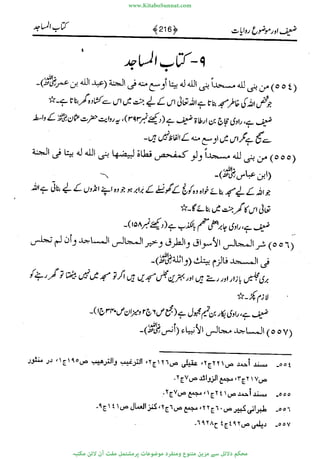 www.KitaboSunnat.com
ضعیف اور موضوع روایات ﴿216﴾ کتاب المساجد
۹- کتاب المساجد
(۵۵۴) من بنى لله مسجداً بنى الله له بيتا أوسع منه في الجنة (عبد الله بن عمر)-
جو شخص اللہ کی خاطر مسجد بناتا ہے اللہ تعالیٰ اس کے لیے جنت میں اس سے کشادہ گھر بناتا ہے۔☆
ضعیف ہے، راوی حجاج بن ارطاۃ ضعیف ہے (دیکھئے نمبر۳۹۳)، یہ روایت حضرت عثمان کے واسطہ
سے صحیح ہے مگر اس میں اوسع منه کے الفاظ نہیں ہیں۔
(۵۵۵) من بنى لله مسجداً ولو كمفحص قطاة لبيضها بنى الله له بيتا في الجنة
(ابن عباس)-
جو اللہ کے لیے مسجد بنائے خواہ وہ کونج کے گھونسلے کے برابر ہو جو وہ اپنے انڈوں کے لیے بناتی ہے اللہ
تعالیٰ اس کا گھر جنت میں بنائے گا۔☆
ضعیف ہے، راوی جابر جعفی متہم بالکذب ہے (دیکھئے نمبر۱۵۸)۔
(۵۵۶) شر المجالس الأسواق والطرق وخير المجالس المساجد وأن لم تجلس
في المسجد فالزم بيتك (واثلة)-
بری مجلسیں بازار اور رستے ہیں اور بہترین مجلس مسجدیں ہیں اگر تو مسجد میں نہیں بیٹھتا تو گھر رہنے کو
لازم پکڑ۔☆
ضعیف ہے، راوی بکار بن تمیم مجہول ہے (مجمع ص۶ ج۲ و میزان ص۳۴۰ ج۱)۔
(۵۵۷) المساجد مجالس الأنبياء (أنس)-
۵۵۴- مسند أحمد ص۲۲۱ج۲، عقیلی ص۱۲۶ج۲، الترغيب والترهيب ص۱۹۵ج۱، در منثور
ص۲۱۷ج۳، مجمع الزوائد ص۷ج۲-
۵۵۵- مسند أحمد ص۲۴۱ج۱، مجمع ص۷ج۲-
۵۵۶- طبرانی کبیر ص۶۰ج۲۲، مجمع ص۶ج۲، کنز العمال ص۱۴۱ج۹-
۵۵۷- دیلمی ص۴۹۲ج۴ ح۶۹۲۸-
محکم دلائل سے مزین متنوع ومنفرد موضوعات پر مشتمل مفت آن لائن مکتبہ